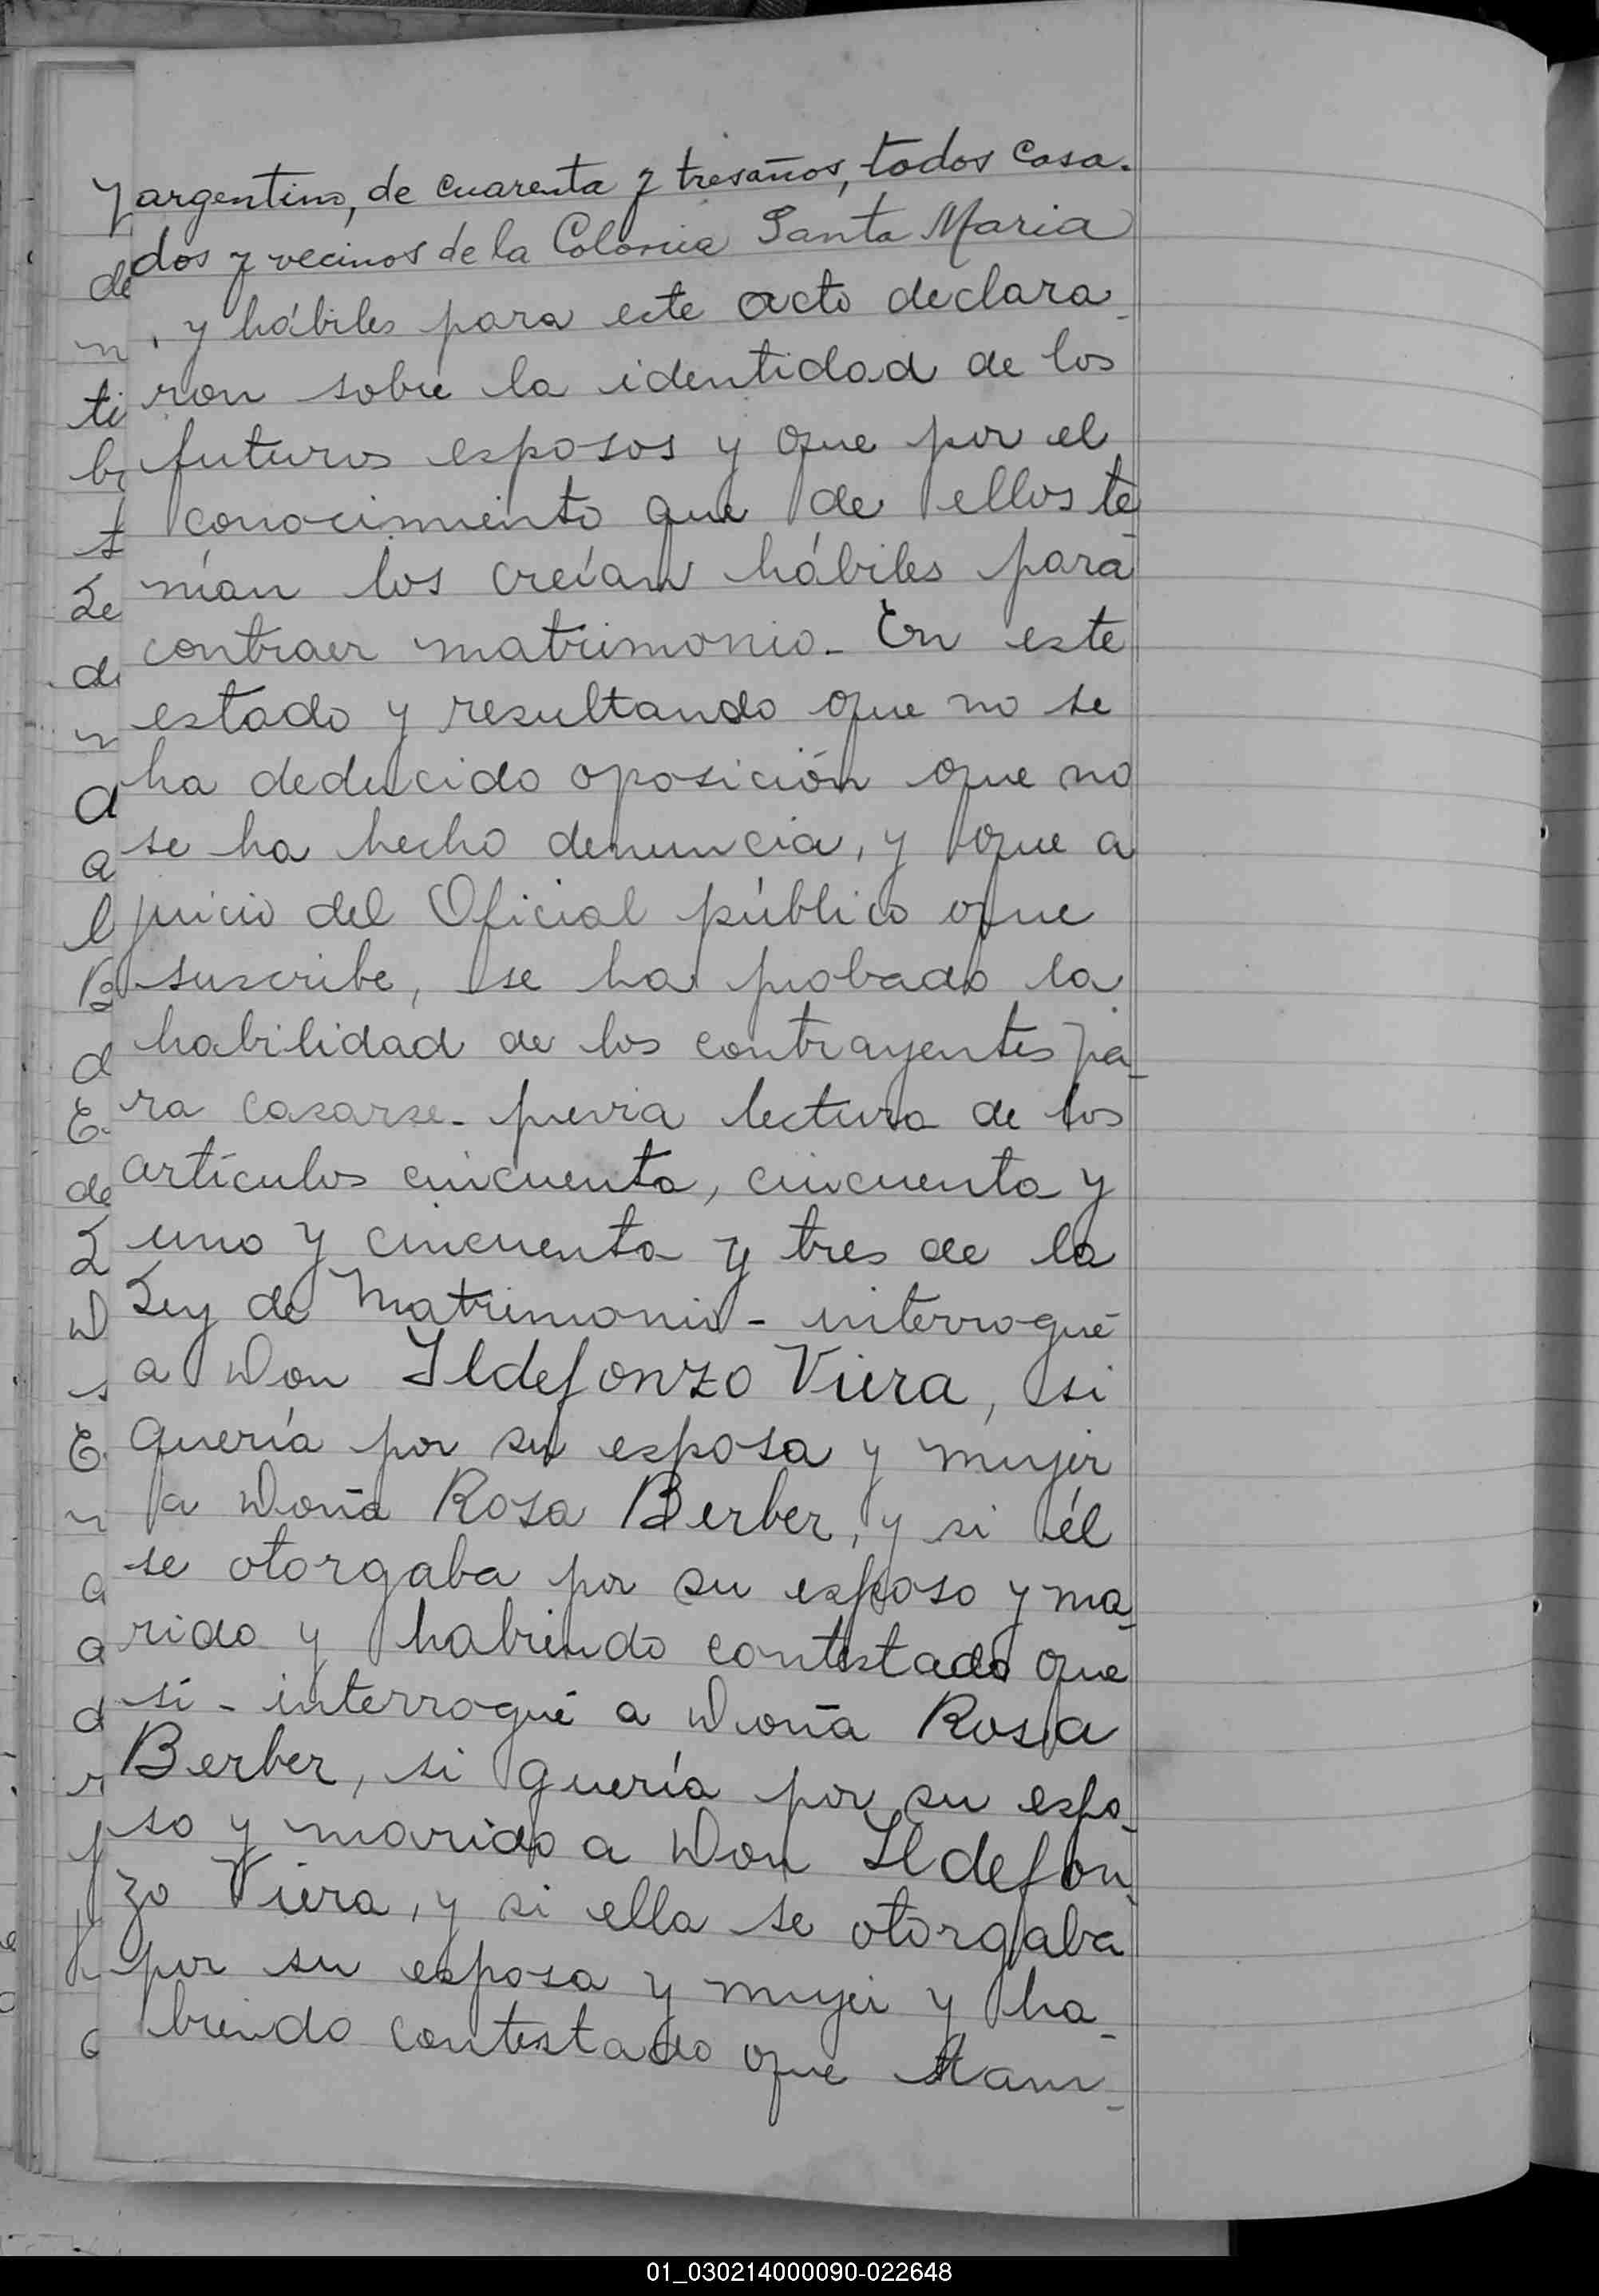 argentino, de cuarenta y tres años, todos casa-
dos y vecinos de la Colonia Santa Maria
, y hábiles para este acto declara-
ron sobre la identidad de los
futuros esposos y que por el
conocimiento que de ellos te-
nían los creían hábiles para
contraer matrimonio - En este
estado y resultando que no se
ha deducido oposición que no
se ha hecho denuncia, y que a
juicio del Oficial público que
suscribe, se ha probado la
habilidad de los contrayentes pa-
ra casarse - previa lectura de los
artículos cincuenta, cincuenta y
uno y cincuenta y tres de la
Ley de Matrimonio - interrogué
a Don Ildefonzo Viera, si
quería por su esposa y mujer
a Doña Rosa Berber, y si él
se otorgaba por su esposo y ma-
rido y habiendo contestado que
sí - interrogué a Doña Rosa
Berber, si quería por su espo-
so y marido a Don Ildefon-
zo Viera, y si ella se otorgaba
por su esposa y mujer y ha-
biendo contestado que tam-
01_030214000090-022648